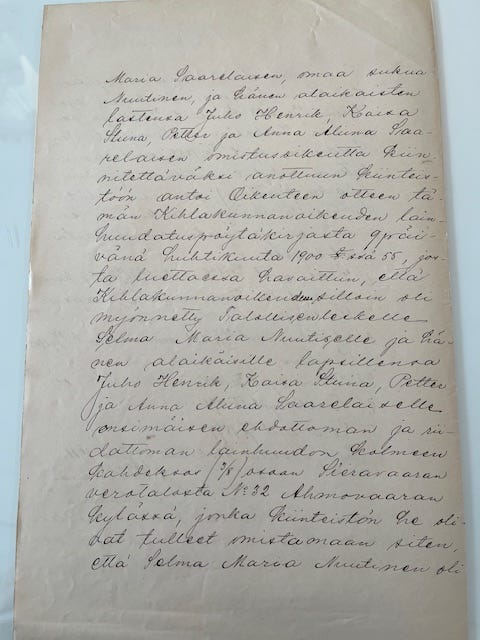 Maria Saarelaisen, omaa sukua
Nuutinen, ja hänen alaikäisten
lastensa Juho Henrik, Kaisa
Stiina, Petter ja Anna Alina Saa-
relaisen omistusoikeutta kiin-
nitettäväksi anottuun kiinteis-
töön antoi Oikeuteen otteen tä-
män Kihlakunnanoikeuden lain-
huudatuspöytäkirjasta 9 päi-
vänä huhtikuuta 1900 §:ssä 55, jos-
ta luettaessa havaittiin, että
Kihlakunnanoikeudessa silloin oli
myönnetty Talollisenleskelle
Selma Maria Nuutiselle ja hä-
nen alaikäisille lapsillensa
Juho Henrik, Kaisa Stiina, Petter
ja Anna Alina Saarelaiselle
ensimäisen ehdottoman ja rii-
dattoman lainhuudon kolmeen
kahdeksas 3/8 josaan Sieravaaran
verotalosta No 32 Ahmovaaran
kylässä, jonka kiinteistön he oli-
vat tulleet omistamaan siten,
että Selma Maria Nuutinen oli